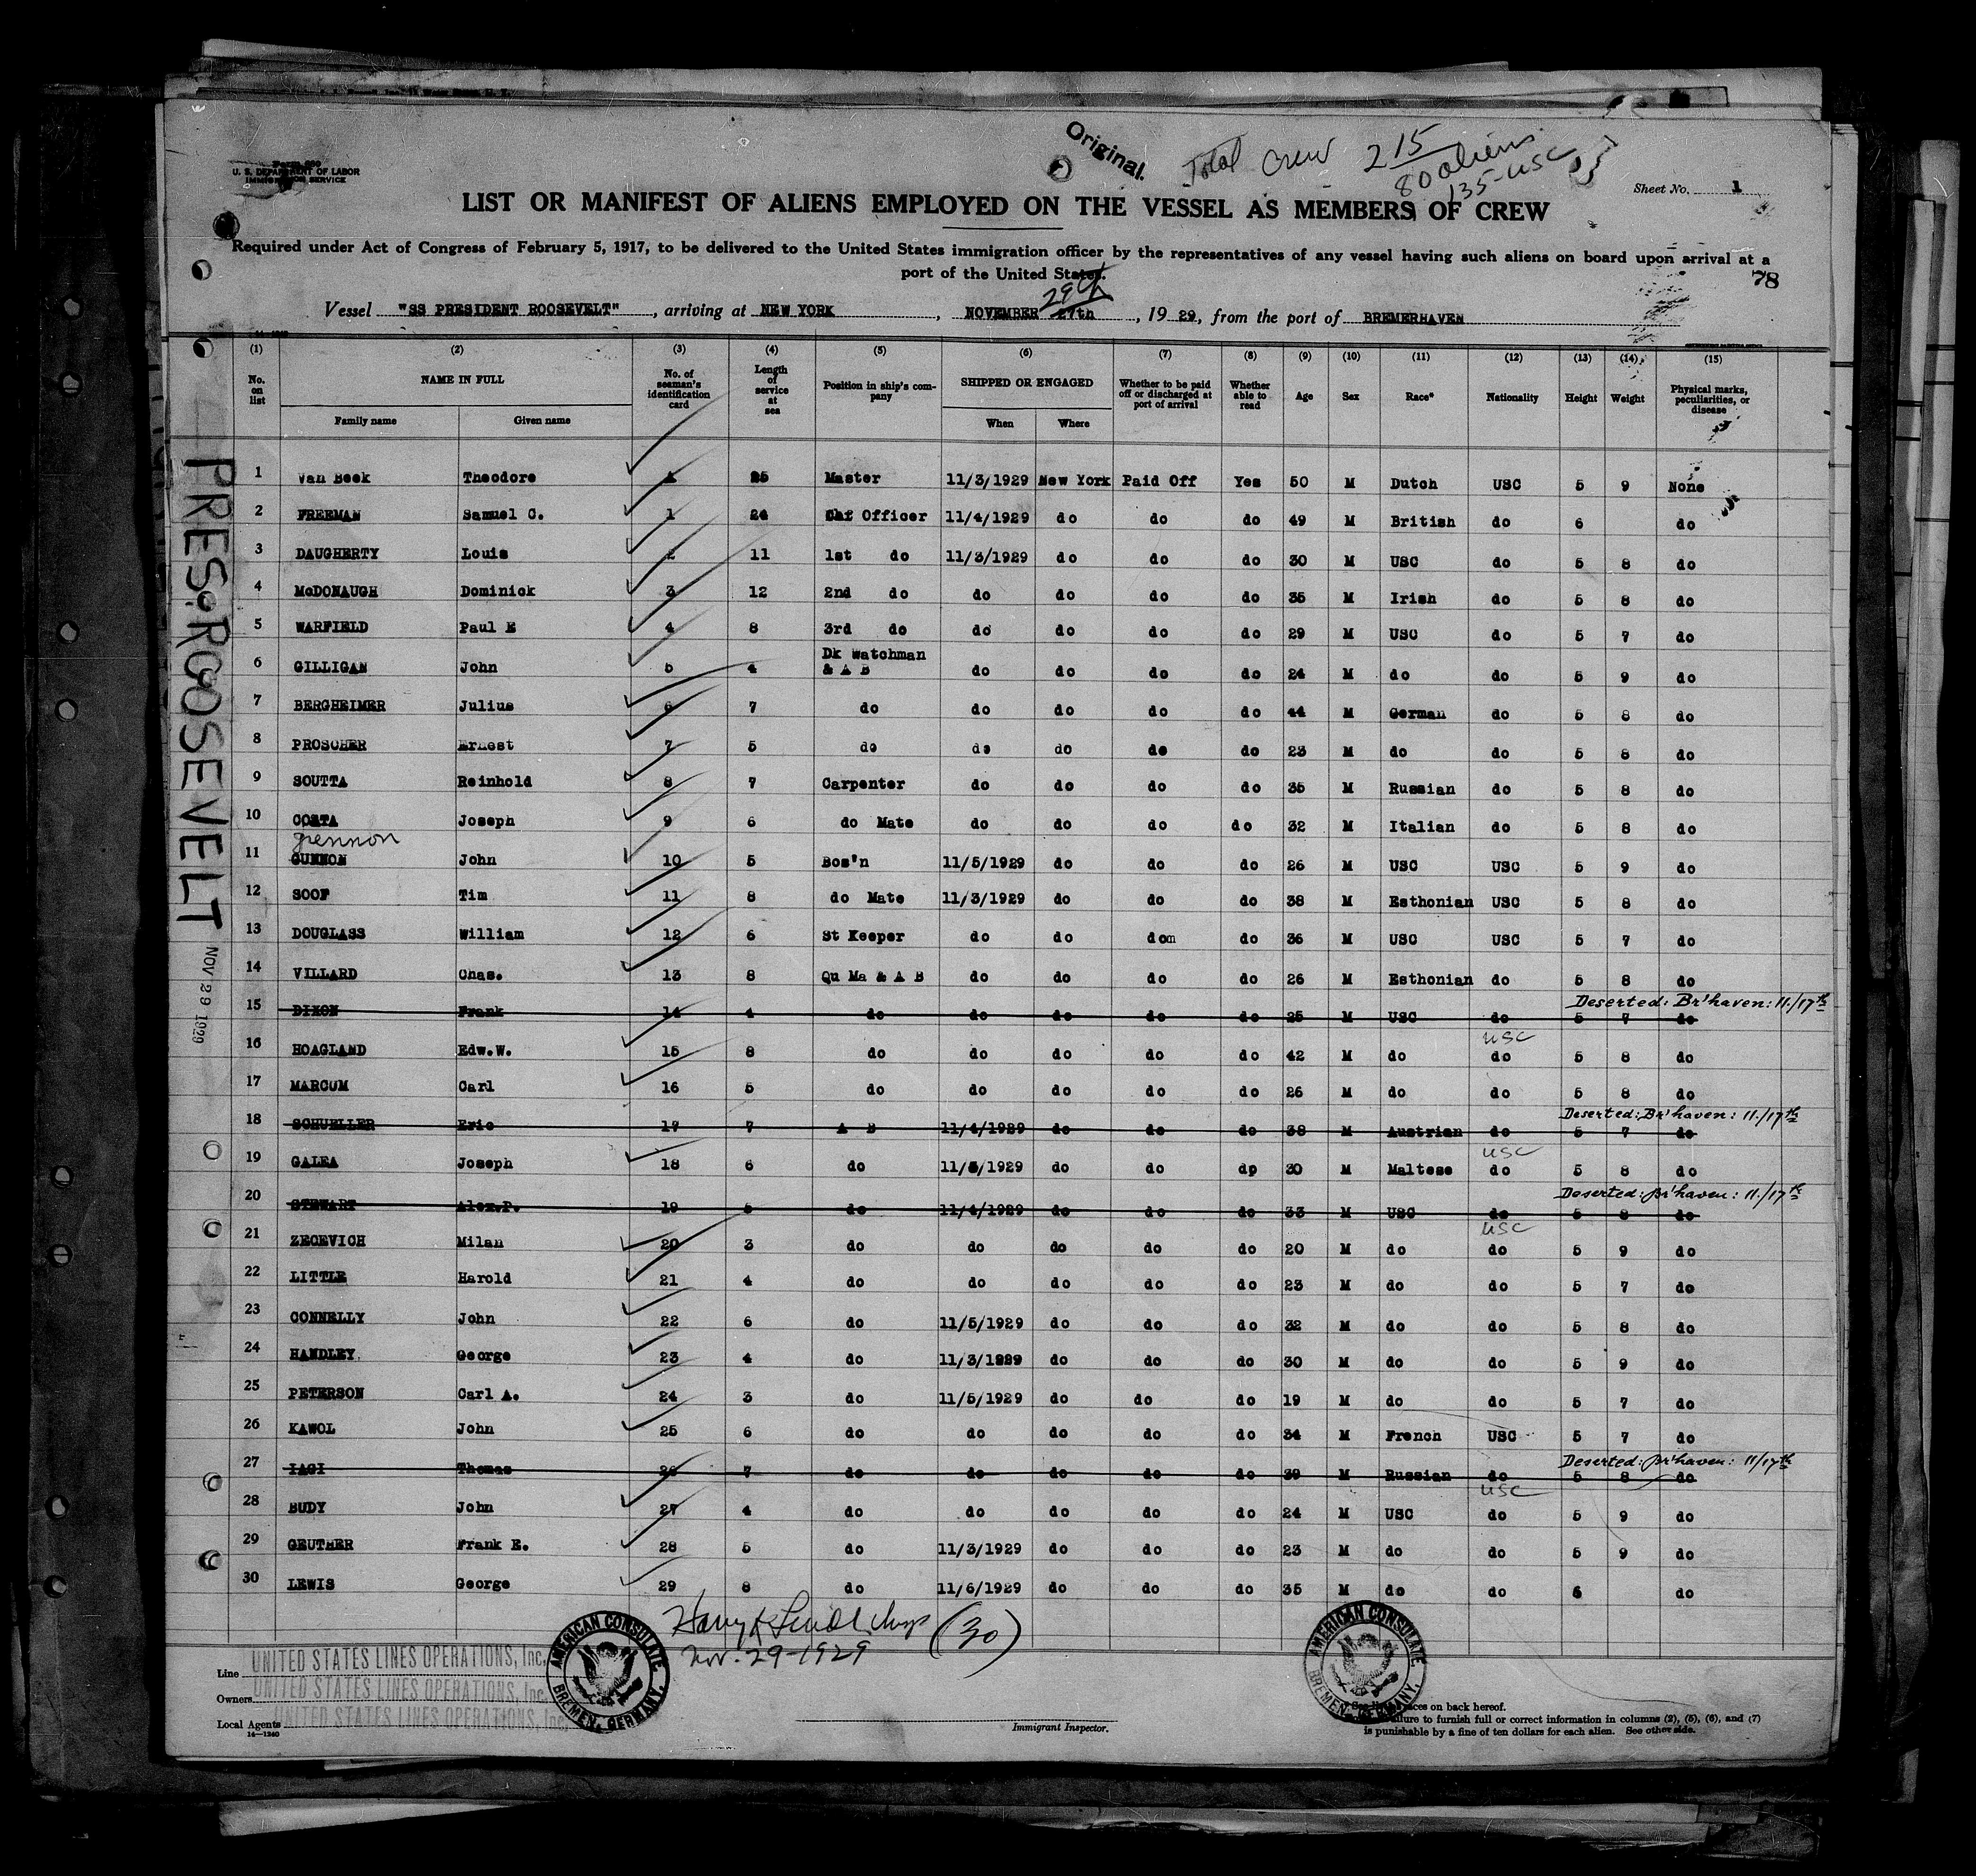 Original.
Total Crew 215
80 aliens
135-USC
Form 680
U. S. DEPARTMENT OF LABOR
IMMIGRATION SERVICE
Sheet No. 1
LIST OR MANIFEST OF ALIENS EMPLOYED ON THE VESSEL AS MEMBERS OF CREW
Required under Act of Congress of February 5, 1917, to be delivered to the United States immigration officer by the representatives of any vessel having such aliens on board upon arrival at a
port of the United States.
78
29th
Vessel "SS PRESIDENT ROOSEVELT", arriving at NEW YORK, NOVEMBER 27th, 1929, from the port of BREMERHAVEN
(1) (2) (3) (4) (5) (6) (7) (8) (9) (10) (11) (12) (13) (14) (15)
No. on list NAME IN FULL No. of seaman's identification card Length of service at sea Position in ship's company SHIPPED OR ENGAGED Whether to be paid off or discharged at port of arrival Whether able to read Age Sex Race* Nationality Height Weight Physical marks, peculiarities, or disease
Family name Given name When Where
1 Van Beek Theodore 25 Master 11/3/1929 New York Paid Off Yes 50 M Dutch USC 5 9 None
2 FREEMAN Samuel C. 1 24 Chf Officer 11/4/1929 do do do 49 M British do 6 do
3 DAUGHERTY Louis 2 11 1st do 11/3/1929 do do do 30 M USC do 5 8 do
4 McDONAUGH Dominick 3 12 2nd do do do do do 35 M Irish do 5 8 do
5 WARFIELD Paul E 4 8 3rd do do do do do 29 M USC do 5 7 do
6 GILLIGAN John 5 4 Dk Watchman & A B do do do do 24 M do do 5 9 do
7 BERGHEIMER Julius 6 7 do do do do do 44 M German do 5 8 do
8 PROSCHER Ernest 7 5 do do do do do 23 M do do 5 8 do
9 SOUTTA Reinhold 8 7 Carpenter do do do do 35 M Russian do 5 8 do
10 COSTA Joseph 9 6 do Mate do do do do 32 M Italian do 5 8 do
grennon
11 GUNNON John 10 5 Bos'n 11/5/1929 do do do 26 M USC USC 5 9 do
12 SOOF Tim 11 8 do Mate 11/3/1929 do do do 38 M Esthonian USC 5 8 do
13 DOUGLASS William 12 6 St Keeper do do dom do 36 M USC USC 5 7 do
14 VILLARD Chas. 13 8 Qu Ma & A B do do do do 26 M Esthonian do 5 8 do
Deserted: Br'haven: 11./17th
15 DIXON Frank 14 4 do do do do do 25 M USC do 5 7 do
USC
16 HOAGLAND Edw.W. 15 8 do do do do do 42 M do do 5 8 do
17 MARCUM Carl 16 5 do do do do do 26 M do do 5 8 do
Deserted: Br'haven: 11./17th
18 SCHUELLER Eric 17 7 A B 11/4/1929 do do do 38 M Austrian do 5 7 do
USC
19 GALEA Joseph 18 6 do 11/5/1929 do do dp 30 M Maltese do 5 8 do
Deserted: Br'haven: 11./17th
20 STEWART Alex.P. 19 5 do 11/4/1929 do do do 33 M USC do 5 8 do
USC
21 ZECEVICH Milan 20 3 do do do do do 20 M do do 5 9 do
22 LITTLE Harold 21 4 do do do do do 23 M do do 5 7 do
23 CONNELLY John 22 6 do 11/5/1929 do do do 32 M do do 5 8 do
24 HANDLEY. George 23 4 do 11/3/1929 do do do 30 M do do 5 9 do
25 PETERSON Carl A. 24 3 do 11/5/1929 do do do 19 M do do 5 7 do
26 KAWOL John 25 6 do do do do do 34 M French USC 5 7 do
Deserted: Br'haven: 11/17th
27 IAGI Thomas 26 7 do do do do do 39 M Russian do 5 8 do
USC
28 BUDY John 27 4 do do do do do 24 M USC do 5 9 do
29 GEUTHER Frank E. 28 5 do 11/3/1929 do do do 23 M do do 5 9 do
30 LEWIS George 29 8 do 11/6/1929 do do do 35 M do do 6 do
PRES. ROOSEVELT
NOV 29 1929
Harry (30)
Nov. 29-1929
Line UNITED STATES LINES OPERATIONS, Inc.
Owners UNITED STATES LINES OPERATIONS, Inc.
Local Agents UNITED STATES LINES OPERATIONS, Inc.
14—1240
AMERICAN CONSULATE. BREMEN, GERMANY.
AMERICAN CONSULATE. BREMEN, GERMANY.
Immigrant Inspector.
* See list of races on back hereof.
failure to furnish full or correct information in columns (2), (5), (6), and (7)
is punishable by a fine of ten dollars for each alien. See other side.